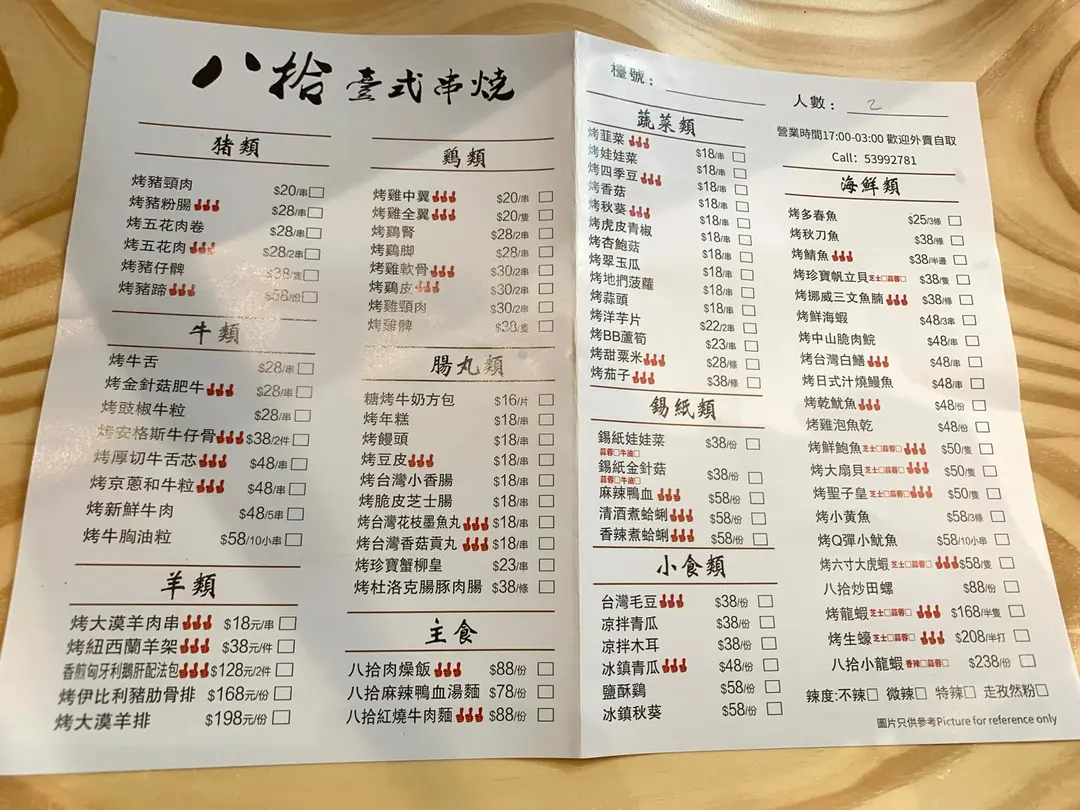 八拾 臺式串燒
猪類
烤豬頸肉 $20/串
烤豬粉腸 $28/串
烤五花肉卷 $28/串
烤五花肉 $28/2串
烤豬仔髀 $38/隻
烤豬蹄 $58/份
牛類
烤牛舌 $28/串
烤金針菇肥牛 $28/串
烤豉椒牛粒 $28/串
烤安格斯牛仔骨 $38/2件
烤厚切牛舌芯 $48/串
烤京蔥和牛粒 $48/串
烤新鮮牛肉 $48/5串
烤牛胸油粒 $58/10小串
羊類
烤大漠羊肉串 $18元/串
烤紐西蘭羊架 $38元/件
香煎匈牙利鵝肝配法包 $128元/2件
烤伊比利豬肋骨排 $168元/份
烤大漠羊排 $198元/份
鷄類
烤雞中翼 $20/串
烤雞全翼 $20/隻
烤鷄腎 $28/2串
烤鷄脚 $28/串
烤雞軟骨 $30/2串
烤鷄皮 $30/2串
烤雞頸肉 $30/2串
烤雞髀 $38/隻
腸丸類
糖烤牛奶方包 $16/片
烤年糕 $18/串
烤饅頭 $18/串
烤豆皮 $18/串
烤台灣小香腸 $18/串
烤脆皮芝士腸 $18/串
烤台灣花枝墨魚丸 $18/串
烤台灣香菇貢丸 $18/串
烤珍寶蟹柳皇 $23/串
烤杜洛克腸豚肉腸 $38/條
主食
八拾肉燥飯 $88/份
八拾麻辣鴨血湯麵 $78/份
八拾紅燒牛肉麵 $88/份
檯號:
蔬菜類
烤韮菜 $18/串
烤娃娃菜 $18/串
烤四季豆 $18/串
烤香菇 $18/串
烤秋葵 $18/串
烤虎皮青椒 $18/串
烤杏鮑菇 $18/串
烤翠玉瓜 $18/串
烤地捫菠蘿 $18/串
烤蒜頭 $18/串
烤洋芋片 $22/2串
烤BB蘆筍 $23/串
烤甜粟米 $28/條
烤茄子 $38/條
錫紙類
錫紙娃娃菜 $38/份
蒜蓉□牛油□
錫紙金針菇 $38/份
蒜蓉□牛油□
麻辣鴨血 $58/份
清酒煮蛤蜊 $58/份
香辣煮蛤蜊 $58/份
小食類
台灣毛豆 $38/份
凉拌青瓜 $38/份
凉拌木耳 $38/份
冰鎮青瓜 $48/份
鹽酥鷄 $58/份
冰鎮秋葵 $58/份
人數: 2
營業時間17:00-03:00 歡迎外賣自取
Call: 53992781
海鮮類
烤多春魚 $25/3條
烤秋刀魚 $38/條
烤鯖魚 $38/半邊
烤珍寶帆立貝 芝士□蒜蓉□ $38/隻
烤挪威三文魚腩 $38/條
烤鮮海蝦 $48/3串
烤中山脆肉鯇 $48/串
烤台灣白鱔 $48/串
烤日式汁燒鰻魚 $48/串
烤乾魷魚 $48/份
烤雞泡魚乾 $48/份
烤鮮鮑魚 芝士□蒜蓉□ $50/隻
烤大扇貝 芝士□蒜蓉□ $50/隻
烤聖子皇 芝士□蒜蓉□ $50/隻
烤小黃魚 $58/3條
烤Q彈小魷魚 $58/10小串
烤六寸大虎蝦 芝士□蒜蓉□ $58/隻
八拾炒田螺 $88/份
烤龍蝦 芝士□蒜蓉□ $168/半隻
烤生蠔 芝士□蒜蓉□ $208/半打
八拾小龍蝦 香辣□蒜蓉□ $238/份
辣度:不辣□ 微辣□ 特辣□ 走孜然粉□
圖片只供參考Picture for reference only